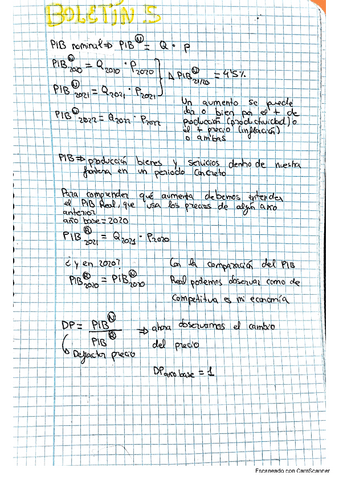 BOLETÍN 5
PIB nominal ⇒ PIB Ⓝ = Q · P
PIB Ⓝ 2020 = Q 2020 · P 2020
Δ PIB Ⓝ 21/20 = 4'5%
PIB Ⓝ 2021 = Q 2021 · P 2021
PIB Ⓝ 2022 = Q 2022 · P 2022
Un aumento se puede
da o bien por el + de
producción (productividad) o
el + precio (inflación)
o ambas
PIB ⇒ producción bienes y servicios dentro de nuestra
frontera en un periodo concreto
Para comprender qué aumenta debemos entender
el PIB Real, que usa los precios de algún año
anterior
año base = 2020
PIB Ⓡ 2021 = Q 2021 · P 2020
¿y en 2020?
PIB Ⓡ 2020 = PIB Ⓝ 2020
Con la comparación del PIB
Real podemos observar como de
competitiva es mi economía
DP = PIB Ⓝ / PIB Ⓡ ⇒ ahora observamos el cambio
del precio
Deflactor precio
DP año base = 1
Escaneado con CamScanner